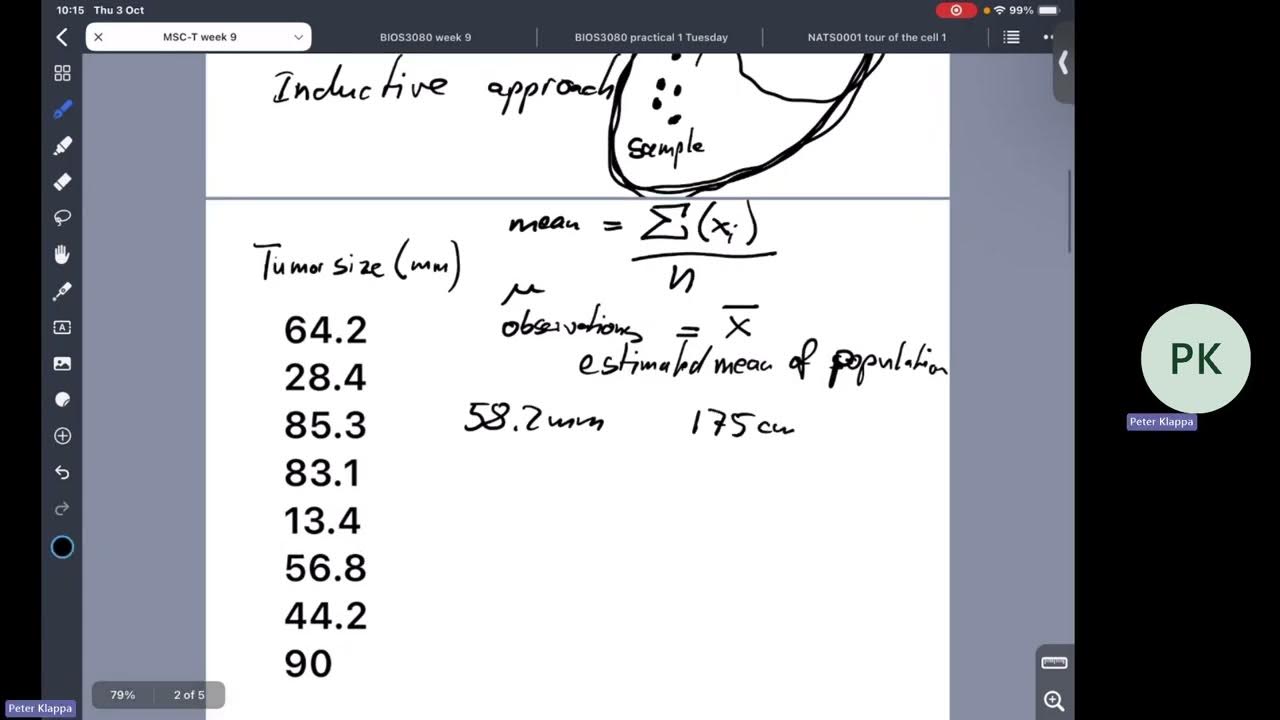 10:15 Thu 3 Oct
99%
MSC-T week 9
BIOS3080 week 9
BIOS3080 practical 1 Tuesday
NATS0001 tour of the cell 1
Inductive approach
sample
mean = Σ(xᵢ)
n
Tumor size (mm)
μ
observations = x̅
estimated mean of population
58.2mm 175cm
64.2
28.4
85.3
83.1
13.4
56.8
44.2
90
79% 2 of 5
PK
Peter Klappa
Peter Klappa